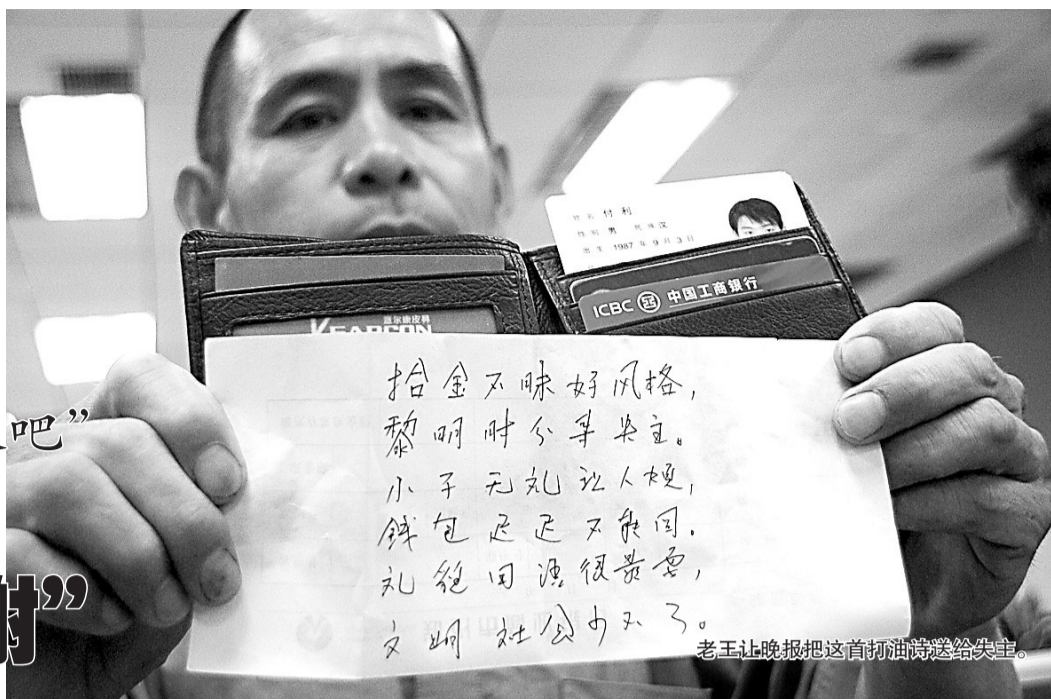 姓名 付利
性别 男 民族 汉
出生 1987 年 9 月 3 日
ICBC 中国工商银行
拾金不昧好风格,
黎明时分寻失主。
小子无礼让人烦,
钱包迟迟不能回。
礼貌用语很最要,
文明社会少不了。
吧”
谢”
老王让晚报把这首打油诗送给失主。